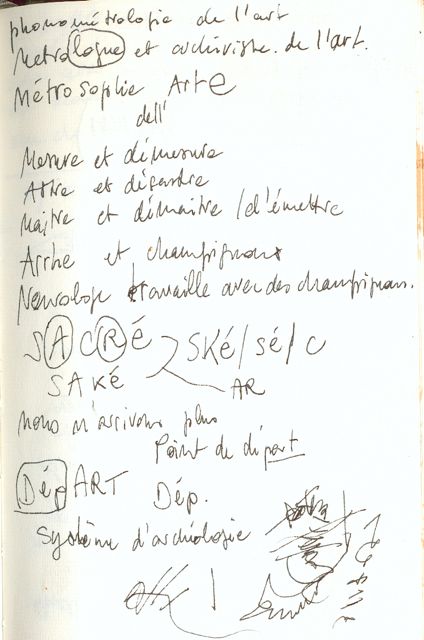 phonométrologie de l'art
Metrologue et archiviste de l'art.
Métrosophie Arte
dell'
Mesure et démesure
et désastre
Maître et démaître / d'émettre
Arrhe et champignons
Neurologe travaille avec des champignons.
SACRÉ SKé/sé/c
SAKÉ AR
nous n'arrivons plus
Point de départ
DépART Dép.
Système d'archéologie